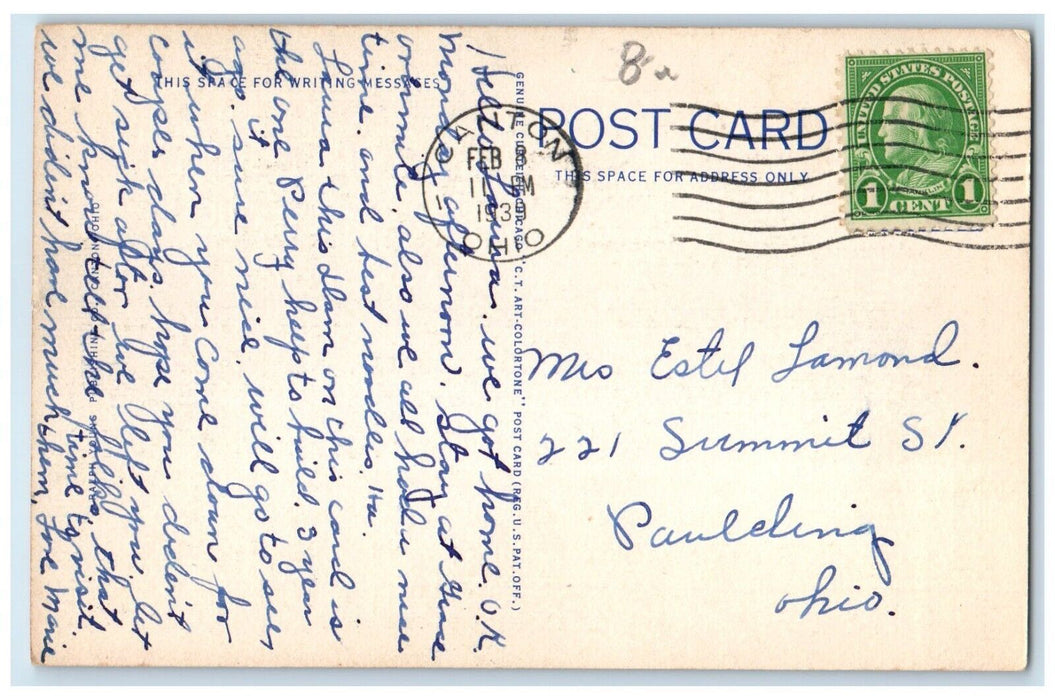 8
THIS SPACE FOR WRITING MESSAGES
POST CARD
THIS SPACE FOR ADDRESS ONLY
CANTON
FEB
11 PM
193
OHIO
UNITED STATES POSTAGE
FRANKLIN
1 CENT 1
Hello Laura. we got home. O.K.
Monday afternoon. Stay at
ornmile. also we all had a nice
time. and best noodles. Ha
Laura this dam on this card is
the one Perry help to build 3 year
ago. sure nice. will go to see
it when you come down for
cooper days. hope you dident
get sick after we left you. but
me know tell the folks, that
we dident have much time to visit
them, Love Marie
GENUINE CURTEICH-CHICAGO "C.T. ART-COLORTONE" POST CARD (REG. U.S. PAT. OFF.)
OHIO
Mrs Estel Lamond.
221 Summit St.
Paulding
Ohio.